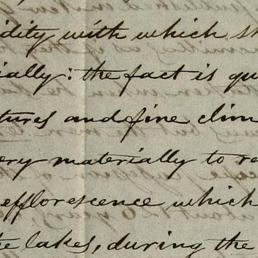 idity with which s
ially: the fact is qu
tures and fine clim
ery materially to re
efflorescence which
he lakes, during the